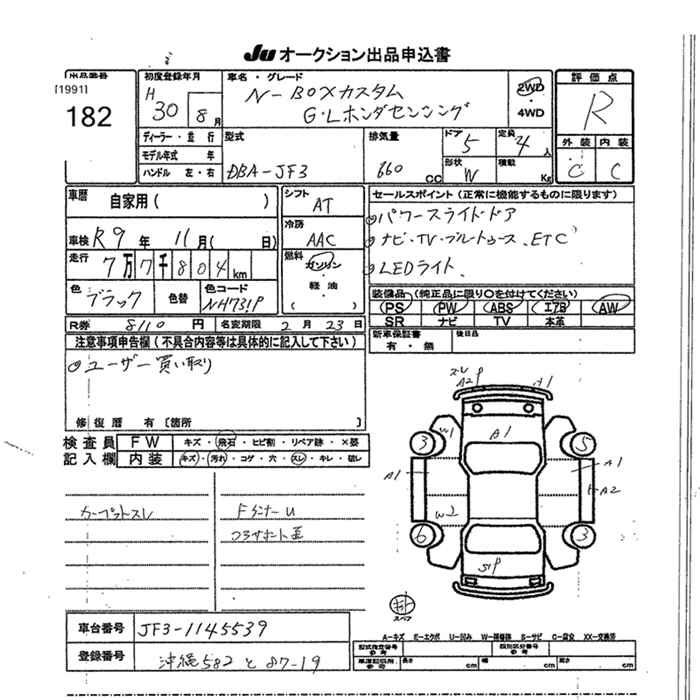 Ju オークション出品申込書
出品番号
[1991]
182
初度登録年月
H 30 年 8 月
車名・グレード
N-BOXカスタム
G・Lホンダセンシング
2WD
・
4WD
評価点
R
外装 内装
C C
ディーラー・並行
モデル年式 年
ハンドル 左・右
型式
DBA-JF3
排気量
660 CC
ドア
5
形状
W
定員
4 人
積載
Kg
車歴
自家用( )
車検 R9 年 11 月( 日)
走行 7万7千804km
色 ブラック 色替
色コード
NH731P
シフト
AT
冷房
AAC
燃料
ガソリン
・
軽油
・
( )
セールスポイント(正常に機能するものに限ります)
パワースライドドア
ナビ・TV・ブルートゥース、ETC
LEDライト、
装備品(純正品に限り○を付けてください)
PS PW ABS エアB AW
SR ナビ TV 本革
新車保証書
有・無
後日品
R券 8110 円 名変期限 2 月 23 日
注意事項申告欄(不具合内容等は具体的に記入して下さい)
ユーザー買い取り
修復歴 有〔箇所 〕
検査員 FW キズ・飛石・ヒビ割・リペア跡・×要
記入欄 内装 キズ・汚れ・コゲ・穴・スレ・キレ・破レ
カーペットスレ
FランナーU
コラサポート歪
スレ
A2 P
A1
3
W1
A1
5
A1
A1
A2
W2
6
3
S1P
スペア
車台番号 JF3-1145539
登録番号 沖縄 582 と 87-19
A-キズ E-エクボ U-凹み W-補修跡 S-サビ C-腐食 XX-交換済
型式指定番号
参考
類別区分番号
参考
車庫証明用
参考
長さ cm 幅 cm 高さ cm